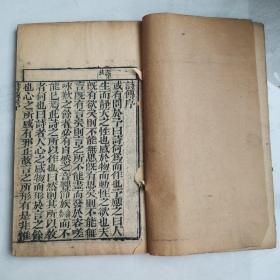 詩傳序
或有問於予曰詩何為而作也予應之曰人
生而靜天之性也感於物而動性之欲也夫
既有欲矣則不能無思既有思矣則不能無
言既有言矣則言之所不能盡而發於咨嗟
咏歎之餘者必有自然之音響節族而不
能已焉此詩之所以作也曰然則其所以教
者何也曰詩者人心之感物而形於言之餘
也心之所感有邪正故言之所形有是非惟